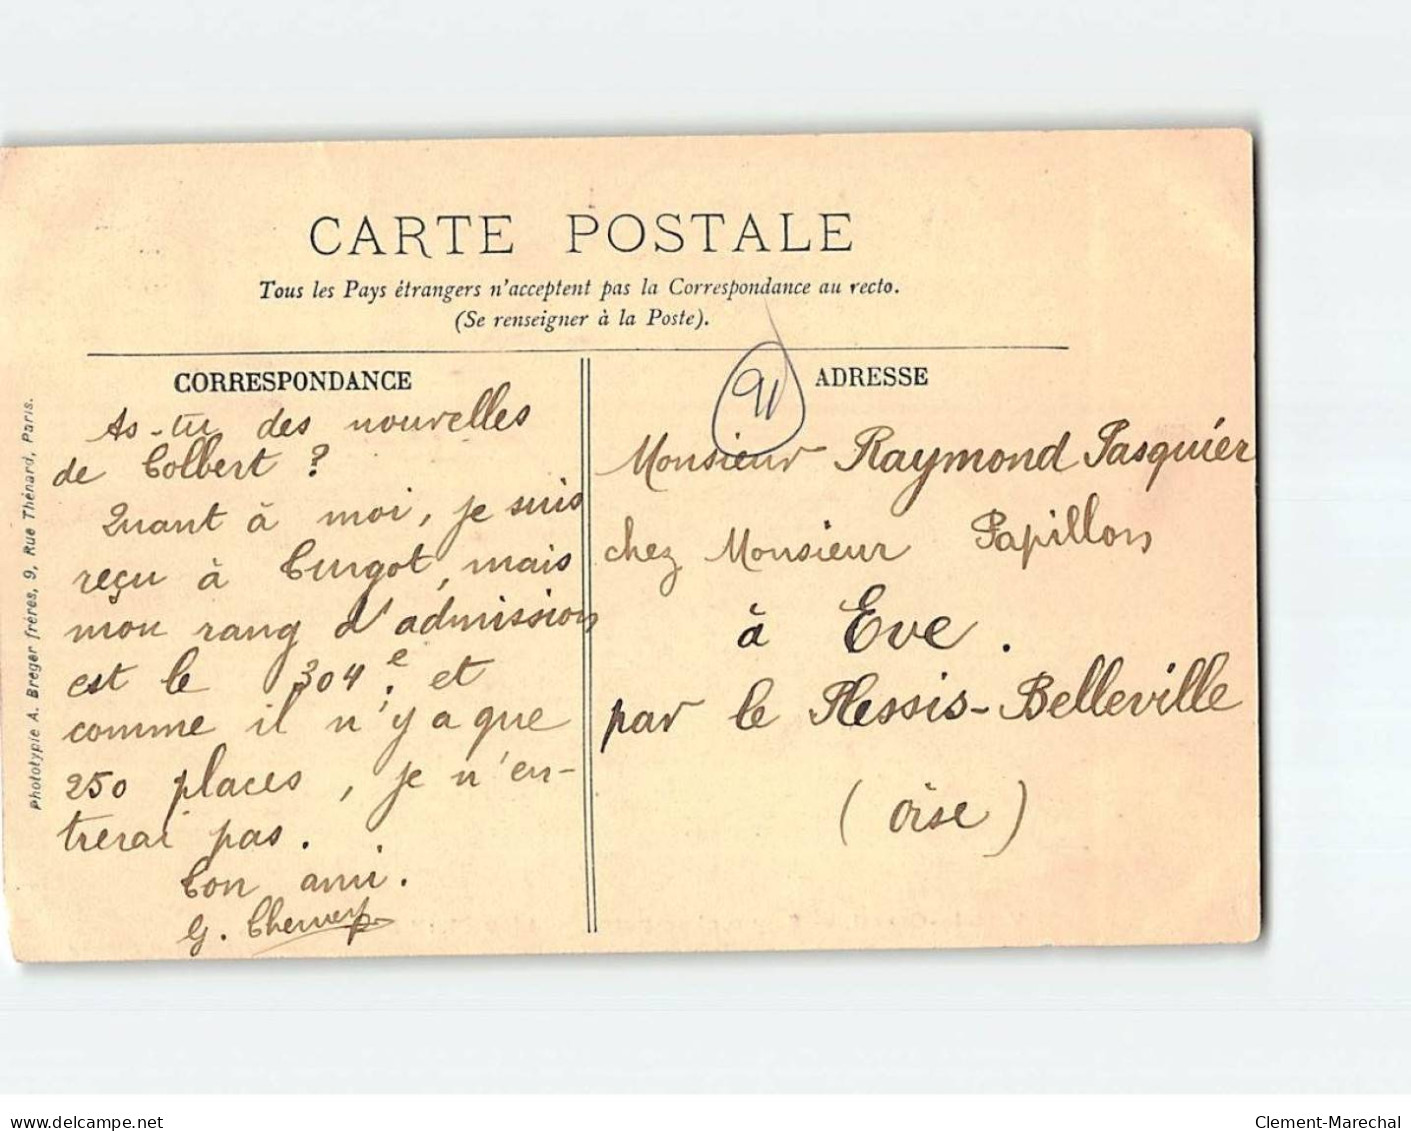 CARTE POSTALE
Tous les Pays étrangers n'acceptent pas la Correspondance au recto.
(Se renseigner à la Poste).
CORRESPONDANCE
As-tu des nouvelles
de Colbert ?
Quant à moi, je suis
reçu à Turgot, mais
mon rang d'admission
est le 304e. et
comme il n'y a que
250 places, je n'en-
trerai pas.
Ton ami.
G.
91
ADRESSE
Monsieur Raymond Pasquier
chez Monsieur Papillon
à Eve.
par le Plessis-Belleville
(Oise)
Phototypie A. Breger frères, 9, Rue Thénard, Paris.
delcampe.net
Clement-Marechal